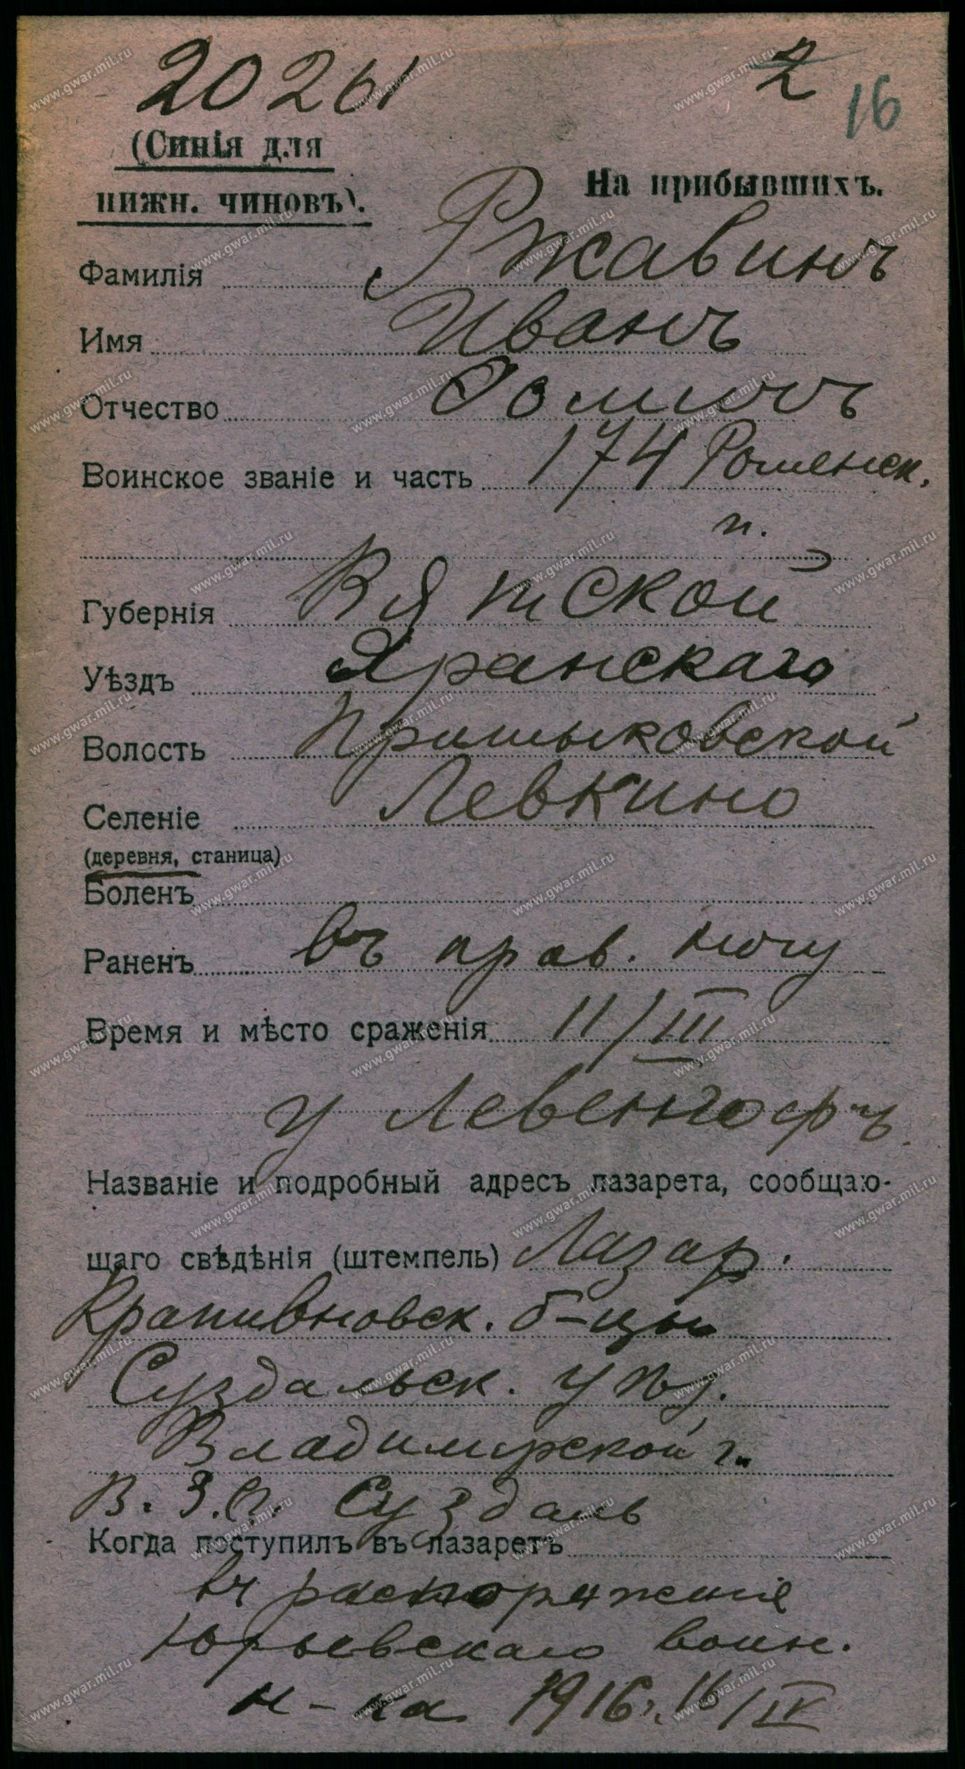 20261 2 16
(Синія для
нижн. чиновъ). На прибывшихъ.
Фамилія Ржавинъ
Имя Иванъ
Отчество
Воинское званіе и часть 174 Роменск.
п.
Губернія Вятской
Уѣздъ Яранскаго
Волость Притыковской
Селеніе Левкино
(деревня, станица)
Боленъ
Раненъ въ прав. ногу
Время и мѣсто сраженія 11/III
у Левенгофъ.
Названіе и подробный адресъ лазарета, сообщаю-
щаго свѣдѣнія (штемпель) Лазар.
Крапивновск. б-цы
Суздальск. уѣз.
Владимирской г.
В. З. С. Суздаль
Когда поступилъ въ лазаретъ
въ распоряженіе
Юрьевскаго воин.
н-ка 1916 г. 16/IV